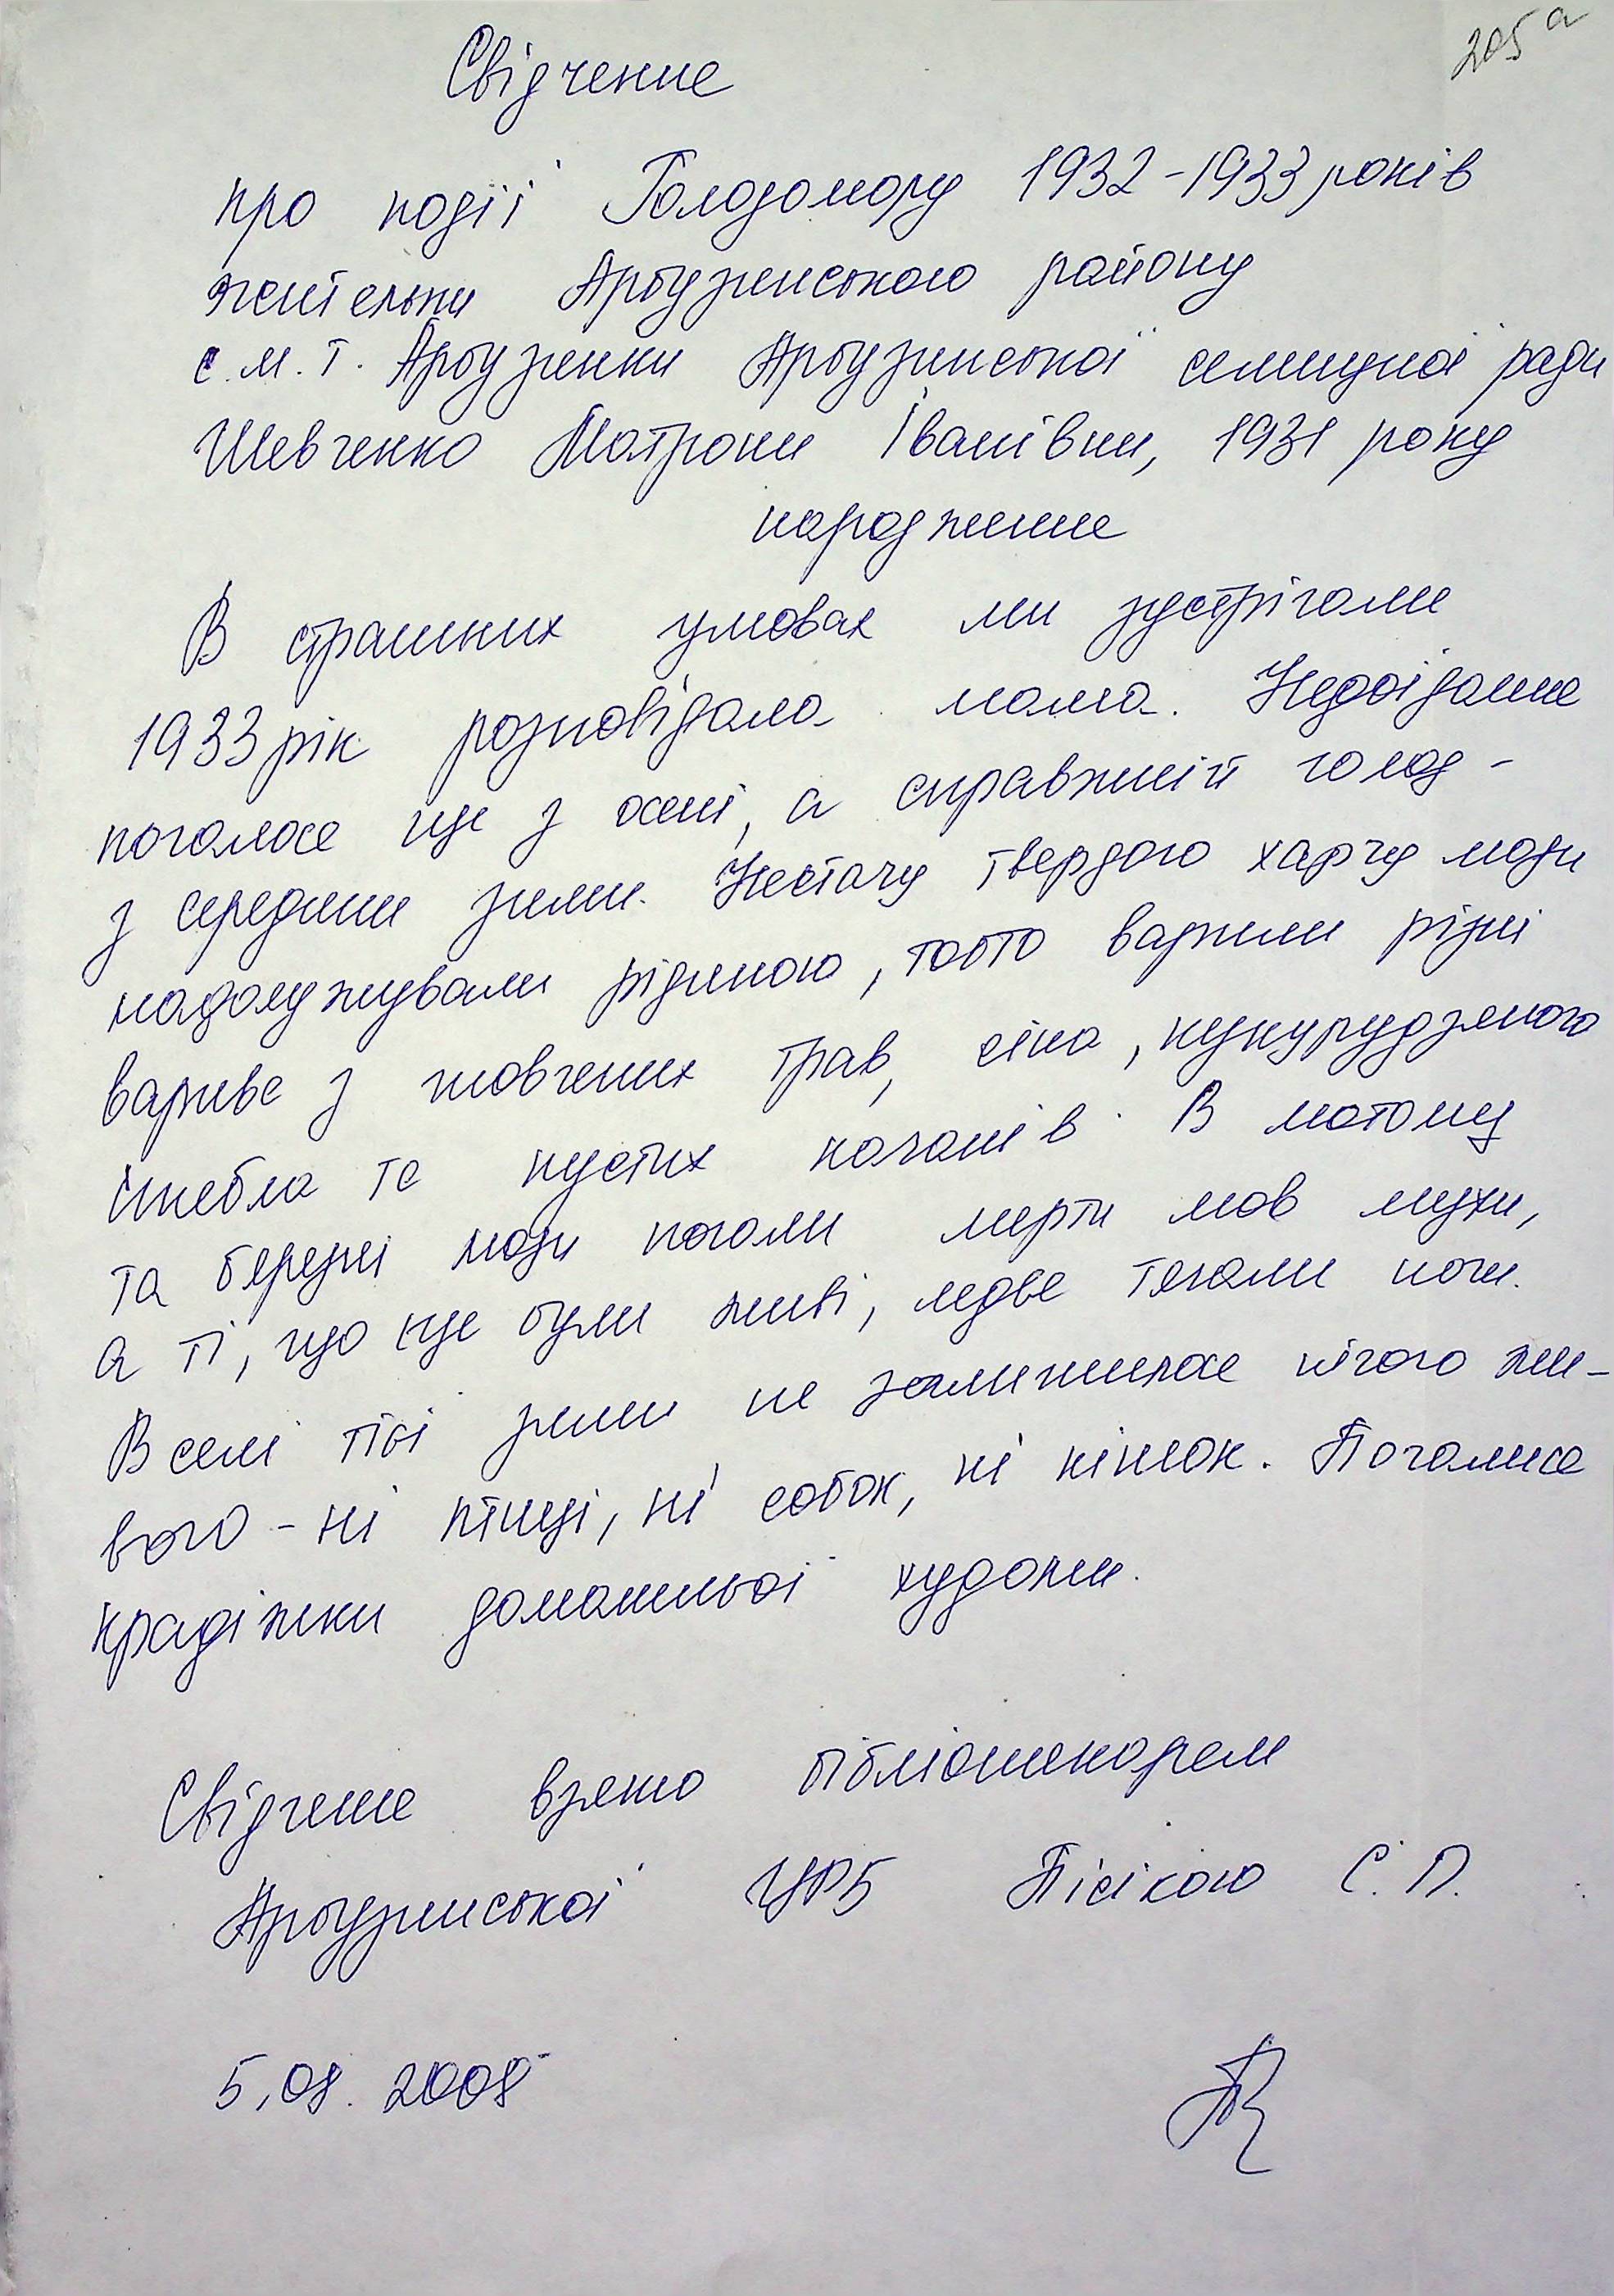 205а
Свідчення
про події Голодомору 1932-1933 років
жительки Арбузинського району
с.м.т. Арбузинки Арбузинської селищної ради
Шевченко Мотрони Іванівни, 1931 року
народження
В страшних умовах ми зустрічали
1933 рік розповідала мама. Недоїдання
почалося ще з осені, а справжній голод -
з середини зими. Нестачу твердого харчу люди
надолужували рідиною, тобто варили різні
варива з товчених трав, сіна, кукурудзяного
шебла та пустих качанів. В лютому
та березні люди почали мерти мов мухи,
а ті, що ще були живі, ледве тягали ноги.
В селі тієї зими не залишилося нічого жи-
вого - ні птиці, ні собак, ні кішок. Почалися
крадіжки домашньої худоби.
Свідчення взято бібліотекарем
Арбузинської ЦРБ Пісікою С.П.
5,08. 2008